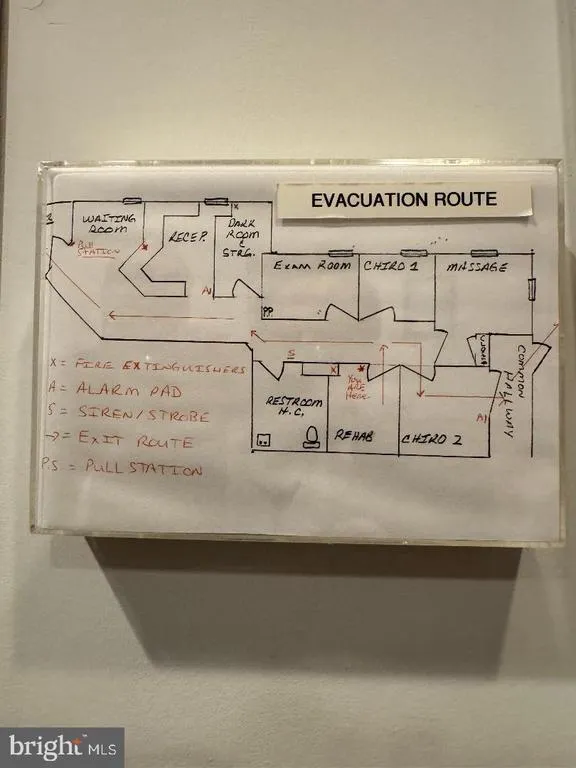 EVACUATION ROUTE
WAITING
ROOM
Pull
STATION
RECEP.
DARK
ROOM
&
STRG.
X
EXAM ROOM
CHIRO 1
MASSAGE
A
P.P.
S
X
YOU
ARE
HERE
RESTROOM
H.C.
REHAB
CHIRO 2
A
COMMON
HALLWAY
X = FIRE EXTINGUISHERS
A = ALARM PAD
S = SIREN/STROBE
→ = EXIT ROUTE
P.S = PULL STATION
bright MLS